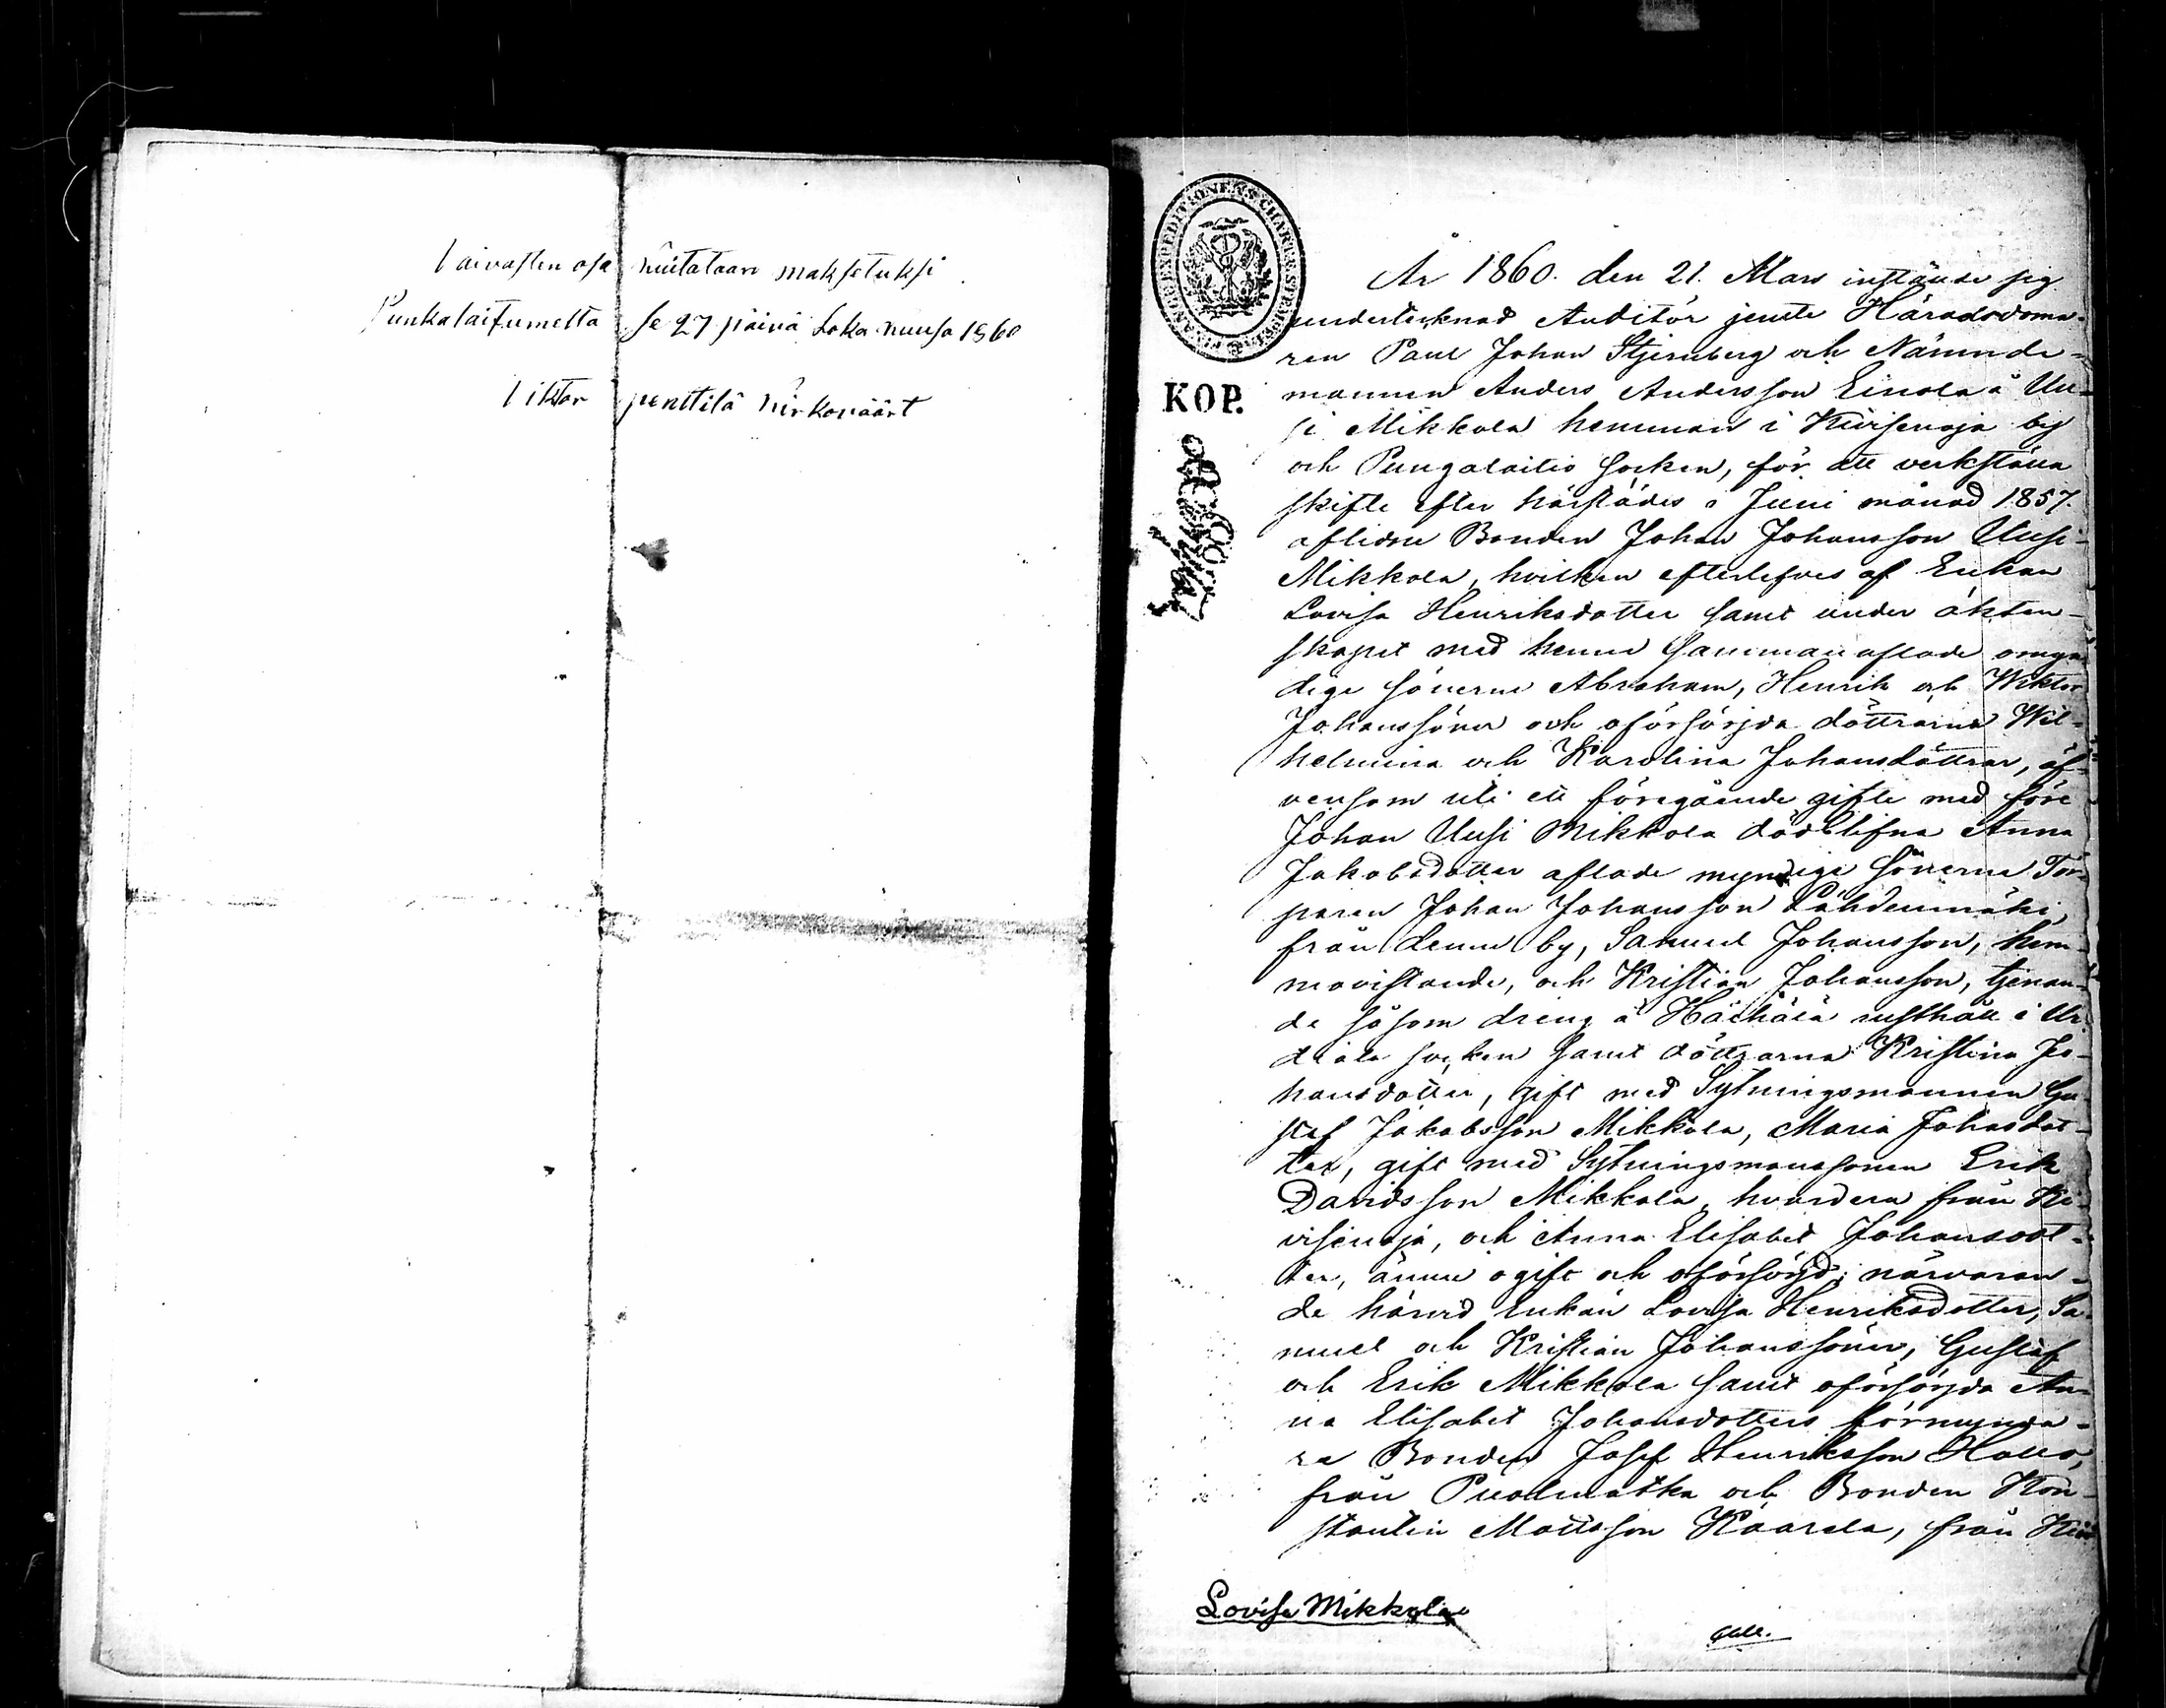 Vaivasten osa kuitataan maksetuksi
Punkalaitumella se 27 päivä Loka kuusa 1860
Viktor penttilä kirkoväärt
FINANCEEXPEDITIONENS CHARTÆ STEMPEL
KOP.
År 1860. den 21. Mars instälde sig
undertecknad Auditör jemte Häradsdoma-
ren Paul Johan Stjernberg och Nämnde-
mannen Anders Andersson Einola å Uu-
si Mikkola hemman i Kivisenoja by
och Pungalaitio socken, för att verkställa
skifte efter härstädes i Juni månad 1857.
aflidne Bonden Johan Johansson Uusi-
Mikkola, hvilken efterlefves af Enkan
Lovisa Henriksdotter samt under äkten-
skapet med henne sammanaflade omyn-
dige sönerne Abraham, Henrik och Wiktor
Johanssöner och oförsörjda döttrarna Wil-
helmina och Karolina Johansdöttrar, äf-
vensom uti ett föregående gifte med före
Johan Uusi Mikkola dödblifna Anna
Jakobsdotter aflade myndige sönerne Tor-
paren Johan Johansson Lähdenmäki,
från denne by, Samuel Johansson, hem-
mavistande, och Kristian Johansson, tjenan-
de såsom dreng å rusthåll i Ur-
diala socken samt döttrarna Kristina Jo-
hansdotter, gift med Sytningsmannen Gu-
staf Jakobsson Mikkola, Maria Johansdot-
ter, gift med Sytningsmanssonen Erik
Davidsson Mikkola, hvardera från Ki-
visenoja, och Anna Elisabet Johansdot-
ter, ännu ogift och oförsörjd; närvaran-
de härvid Enkan Lovisa Henriksdotter, Sa-
muel och Kristian Johanssöner, Gustaf
och Erik Mikkola samt oförsörjda An-
na Elisabet Johansdotters förmynda-
re Bonden Josef Henriksson Hallo,
från Puolmatka och Bonden Kon-
stantin Mattsson Kaarela, från
Lovisa Mikkola